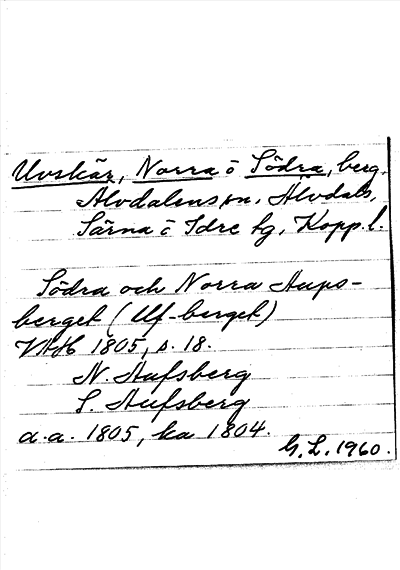 Uvskär, Norra o Södra, berg.
Älvdalens sn. Älvdals,
Särna o Idre tg. Kopp. l.
Södra och Norra Aups-
berget (Uf-berget)
VAH 1805, s. 18.
N. Aufsberg
S. Aufsberg
a.a. 1805, ka 1804.
G. L. 1960.